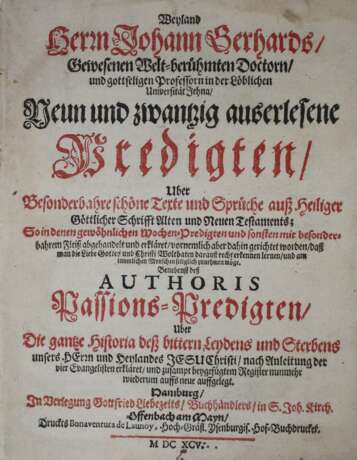 Weyland
Herrn Johann Gerhards/
Gewesenen Welt-berühmten Doctorn/
und gottseligen Professorn in der Löblichen
Universität Jehna/
Neun und zwantzig auserlesene
Predigten/
Uber
Besonderbahre schöne Texte und Sprüche auß Heiliger
Göttlicher Schrifft Alten und Neuen Testaments;
So in denen gewöhnlichen Wochen-Predigten und sonsten mit besonder-
bahrem Fleiß abgehandelt und erkläret/ vornemlich aber dahin gerichtet worden/ daß
man die Liebe Gottes und Christi Wolthaten darauß recht erkennen lernen/ und am
innerlichen Menschen seliglich zunehmen möge.
Benebenst deß
AUTHORIS
Passions-Predigten/
Uber
Die gantze Historia deß bittern Leydens und Sterbens
unsers HErrn und Heylandes JESU Christi/ nach Anleitung der
vier Evangelisten erkläret/ und zusampt beygefügtem Register nunmehr
wiederum auffs neue auffgelegt.
Hamburg/
In Verlegung Gottfried Liebezeits/ Buchhändlers/ in S. Joh. Kirch.
Offenbach am Mayn/
Druckts Bonaventura de Launoy/ Hoch-Gräfl. Ysenburgis. Hof-Buchdrucker.
M DC XCV.